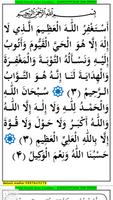 بِسْمِ اللهِ الرَّحْمٰنِ الرَّحِيْمِ
أَسْتَغْفِرُ اللهَ الْعَظِيْمَ الَّذِي لَا
إِلَهَ إِلَّا هُوَ الْحَيُّ الْقَيُّوْمُ وَأَتُوبُ
إِلَيْهِ وَنَسْأَلُهُ التَّوْبَةَ وَالْمَغْفِرَةَ
وَالْهِدَايَةَ لَنَا إِنَّهُ هُوَ التَّوَّابُ
الرَّحِيمُ (٣) سُبْحَانَ اللهِ
وَالْحَمْدُ لِلّٰهِ وَلَا إِلَهَ إِلَّا
اللهُ وَاللهُ أَكْبَرُ وَلَا حَوْلَ وَلَا قُوَّةَ
إِلَّا بِاللهِ الْعَلِيِّ الْعَظِيمِ (٣)
حَسْبُنَا اللهُ وَنِعْمَ الْوَكِيلُ (٤)